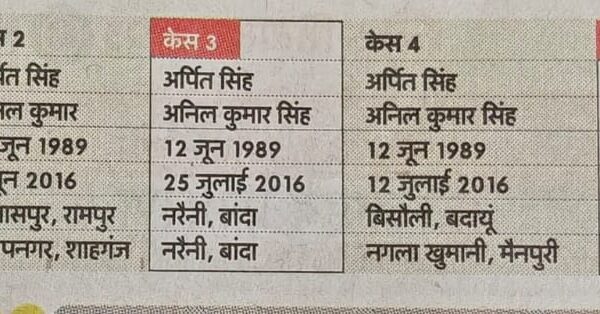 2 केस 3 केस 4
सिंह अर्पित सिंह अर्पित सिंह
कुमार अनिल कुमार सिंह अनिल कुमार सिंह
जून 1989 12 जून 1989 12 जून 1989
2016 25 जुलाई 2016 12 जुलाई 2016
रामपुर नरैनी, बांदा बिसौली, बदायूं
शाहगंज नरैनी, बांदा नगला खुमानी, मैनपुरी